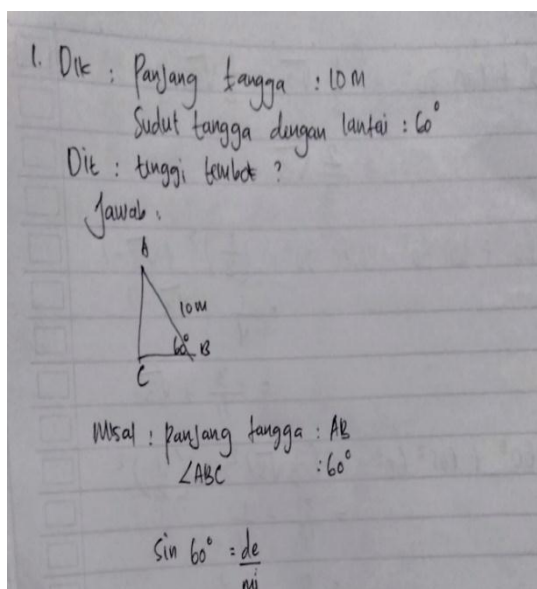 1. Dik : Panjang tangga : 10 m
Sudut tangga dengan lantai : 60°
Dit : tinggi tembok ?
Jawab :
A
10 m
60° B
C
Misal : panjang tangga : AB
∠ABC : 60°
Sin 60° = de
mi